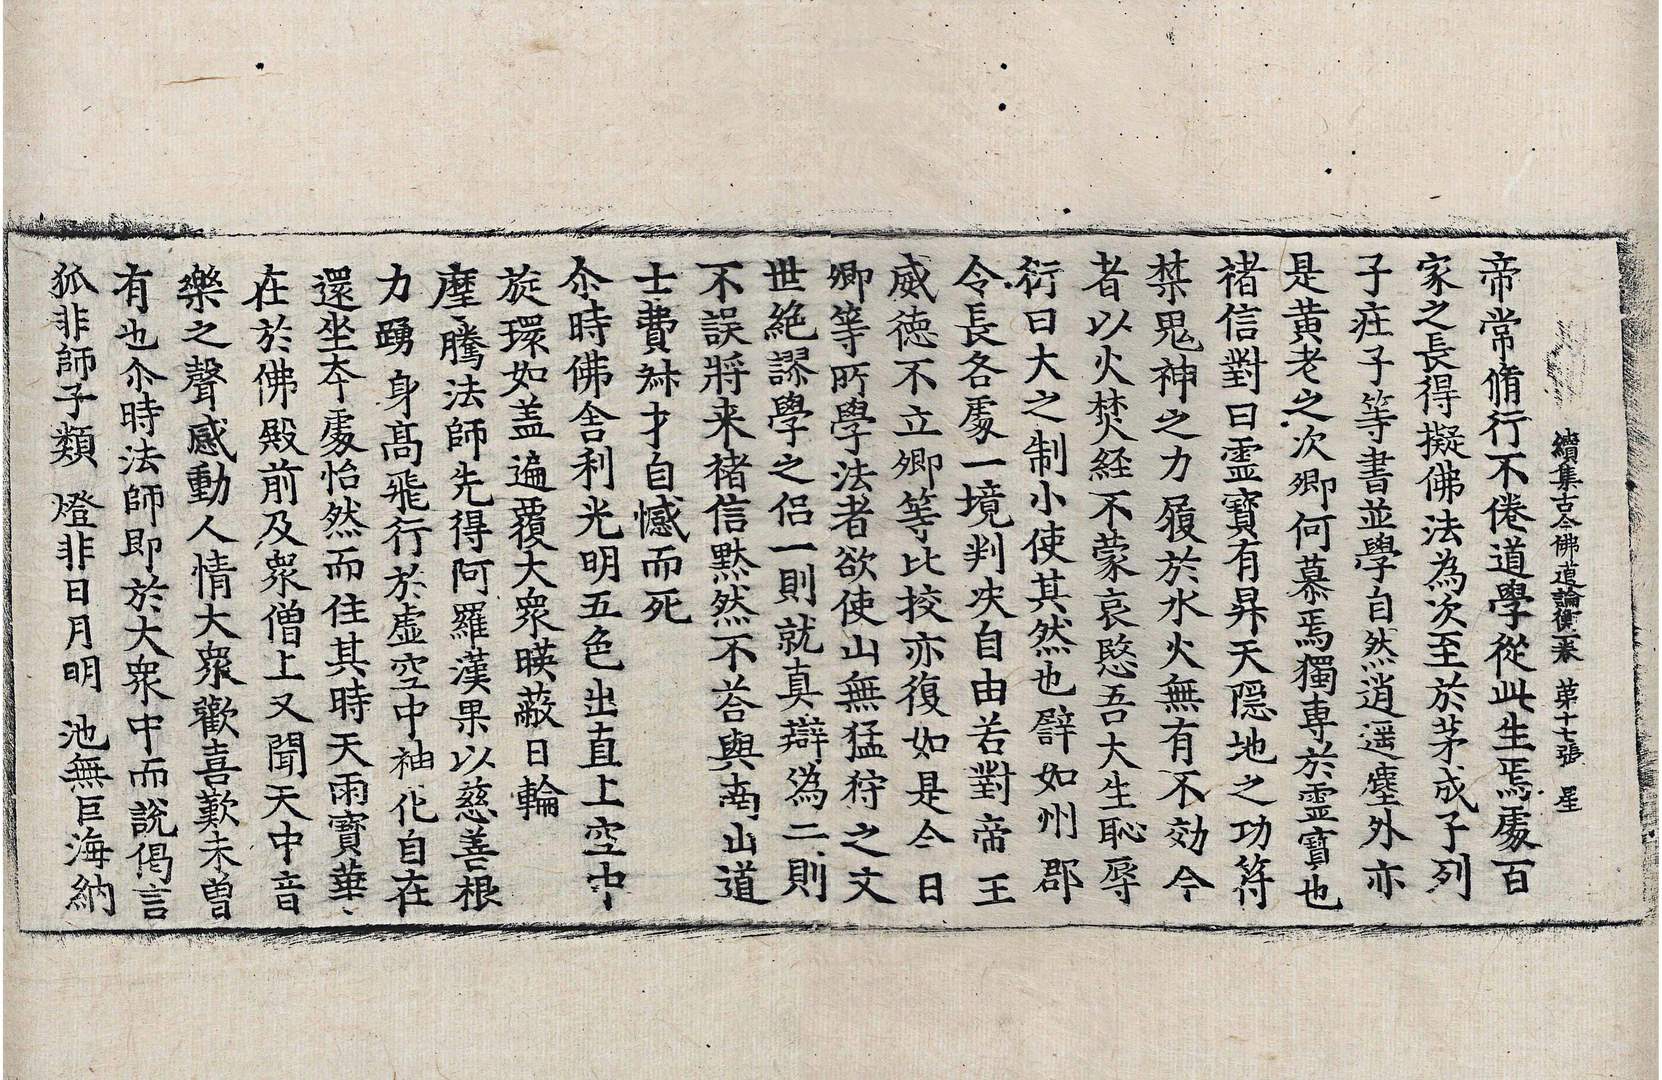 續集古今佛道論衡一卷 第十七張 星
帝常脩行不倦道學從此生焉處百
家之長得擬佛法為次至於茅成子列
子庄子等書並學自然逍遥塵外亦
是黃老之次卿何慕焉獨専於霊寳也
禇信對曰霊寳有昇天隠地之功符
禁鬼神之力履於水火無有不効今
者以火焚経不蒙哀愍吾大生恥辱
衍曰大之制小使其然也譬如州郡
令長各處一境判决自由若對帝王
威徳不立卿等比挍亦復如是今日
卿等所學法者欲使山無猛狩之文
世絶謬學之侣一則就真辯為二則
不誤將来禇信黙然不荅與南山道
士費叔才自憾而死
尒時佛舍利光明五色出直上空中
旋環如盖遍覆大衆暎蔽日輪
摩騰法師先得阿羅漢果以慈善根
力踴身髙飛行於虚空中神化自在
還坐夲處怡然而住其時天雨寳華
在於佛殿前及衆僧上又聞天中音
樂之聲感動人情大衆歡喜歎未曽
有也尒時法師即於大衆中而説偈言
狐非師子類 燈非日月明 池無巨海納